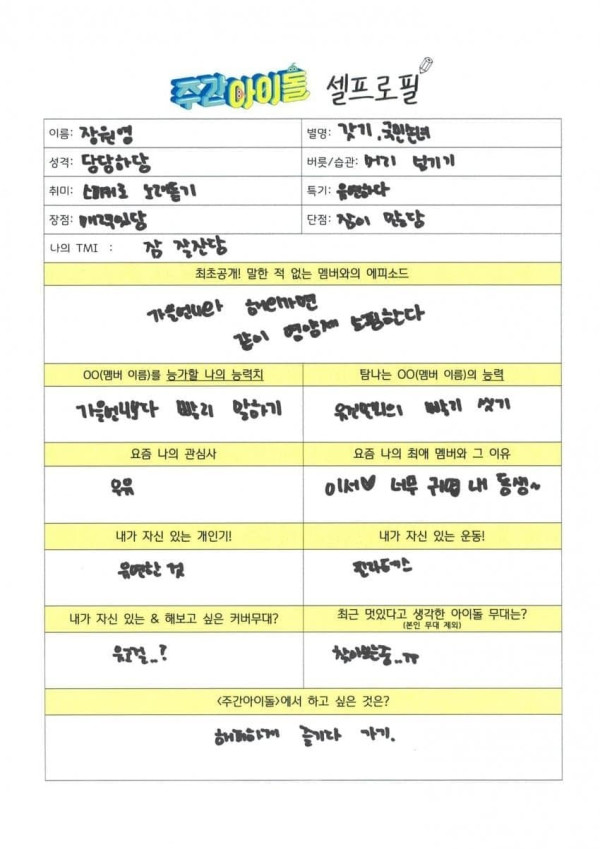 주간아이돌 셀프로필
이름: 장원영 별명: 갓기, 국민손녀
성격: 당당하당 버릇/습관: 머리 넘기기
취미: 스피커로 노래듣기 특기: 유연하다
장점: 매력있당 단점: 잠이 많당
나의 TMI : 잠 잘잔당
최초공개! 말한 적 없는 멤버와의 에피소드
가을언니와 해외가면
같이 영양제 쇼핑한다
OO(멤버 이름)를 능가할 나의 능력치 탐나는 OO(멤버 이름)의 능력
가을언니보다 빨리 말하기 유진언니의 빨리 씻기
요즘 나의 관심사 요즘 나의 최애 멤버와 그 이유
우유 이서♥ 너무 귀여운 내 동생~
내가 자신 있는 개인기! 내가 자신 있는 운동!
유연한 것 필라테스
내가 자신 있는 & 해보고 싶은 커버무대? 최근 멋있다고 생각한 아이돌 무대는?
(본인 무대 제외)
..? 찾아보는중..ㅠㅠ
<주간아이돌>에서 하고 싶은 것은?
해피하게 즐기다 가기.